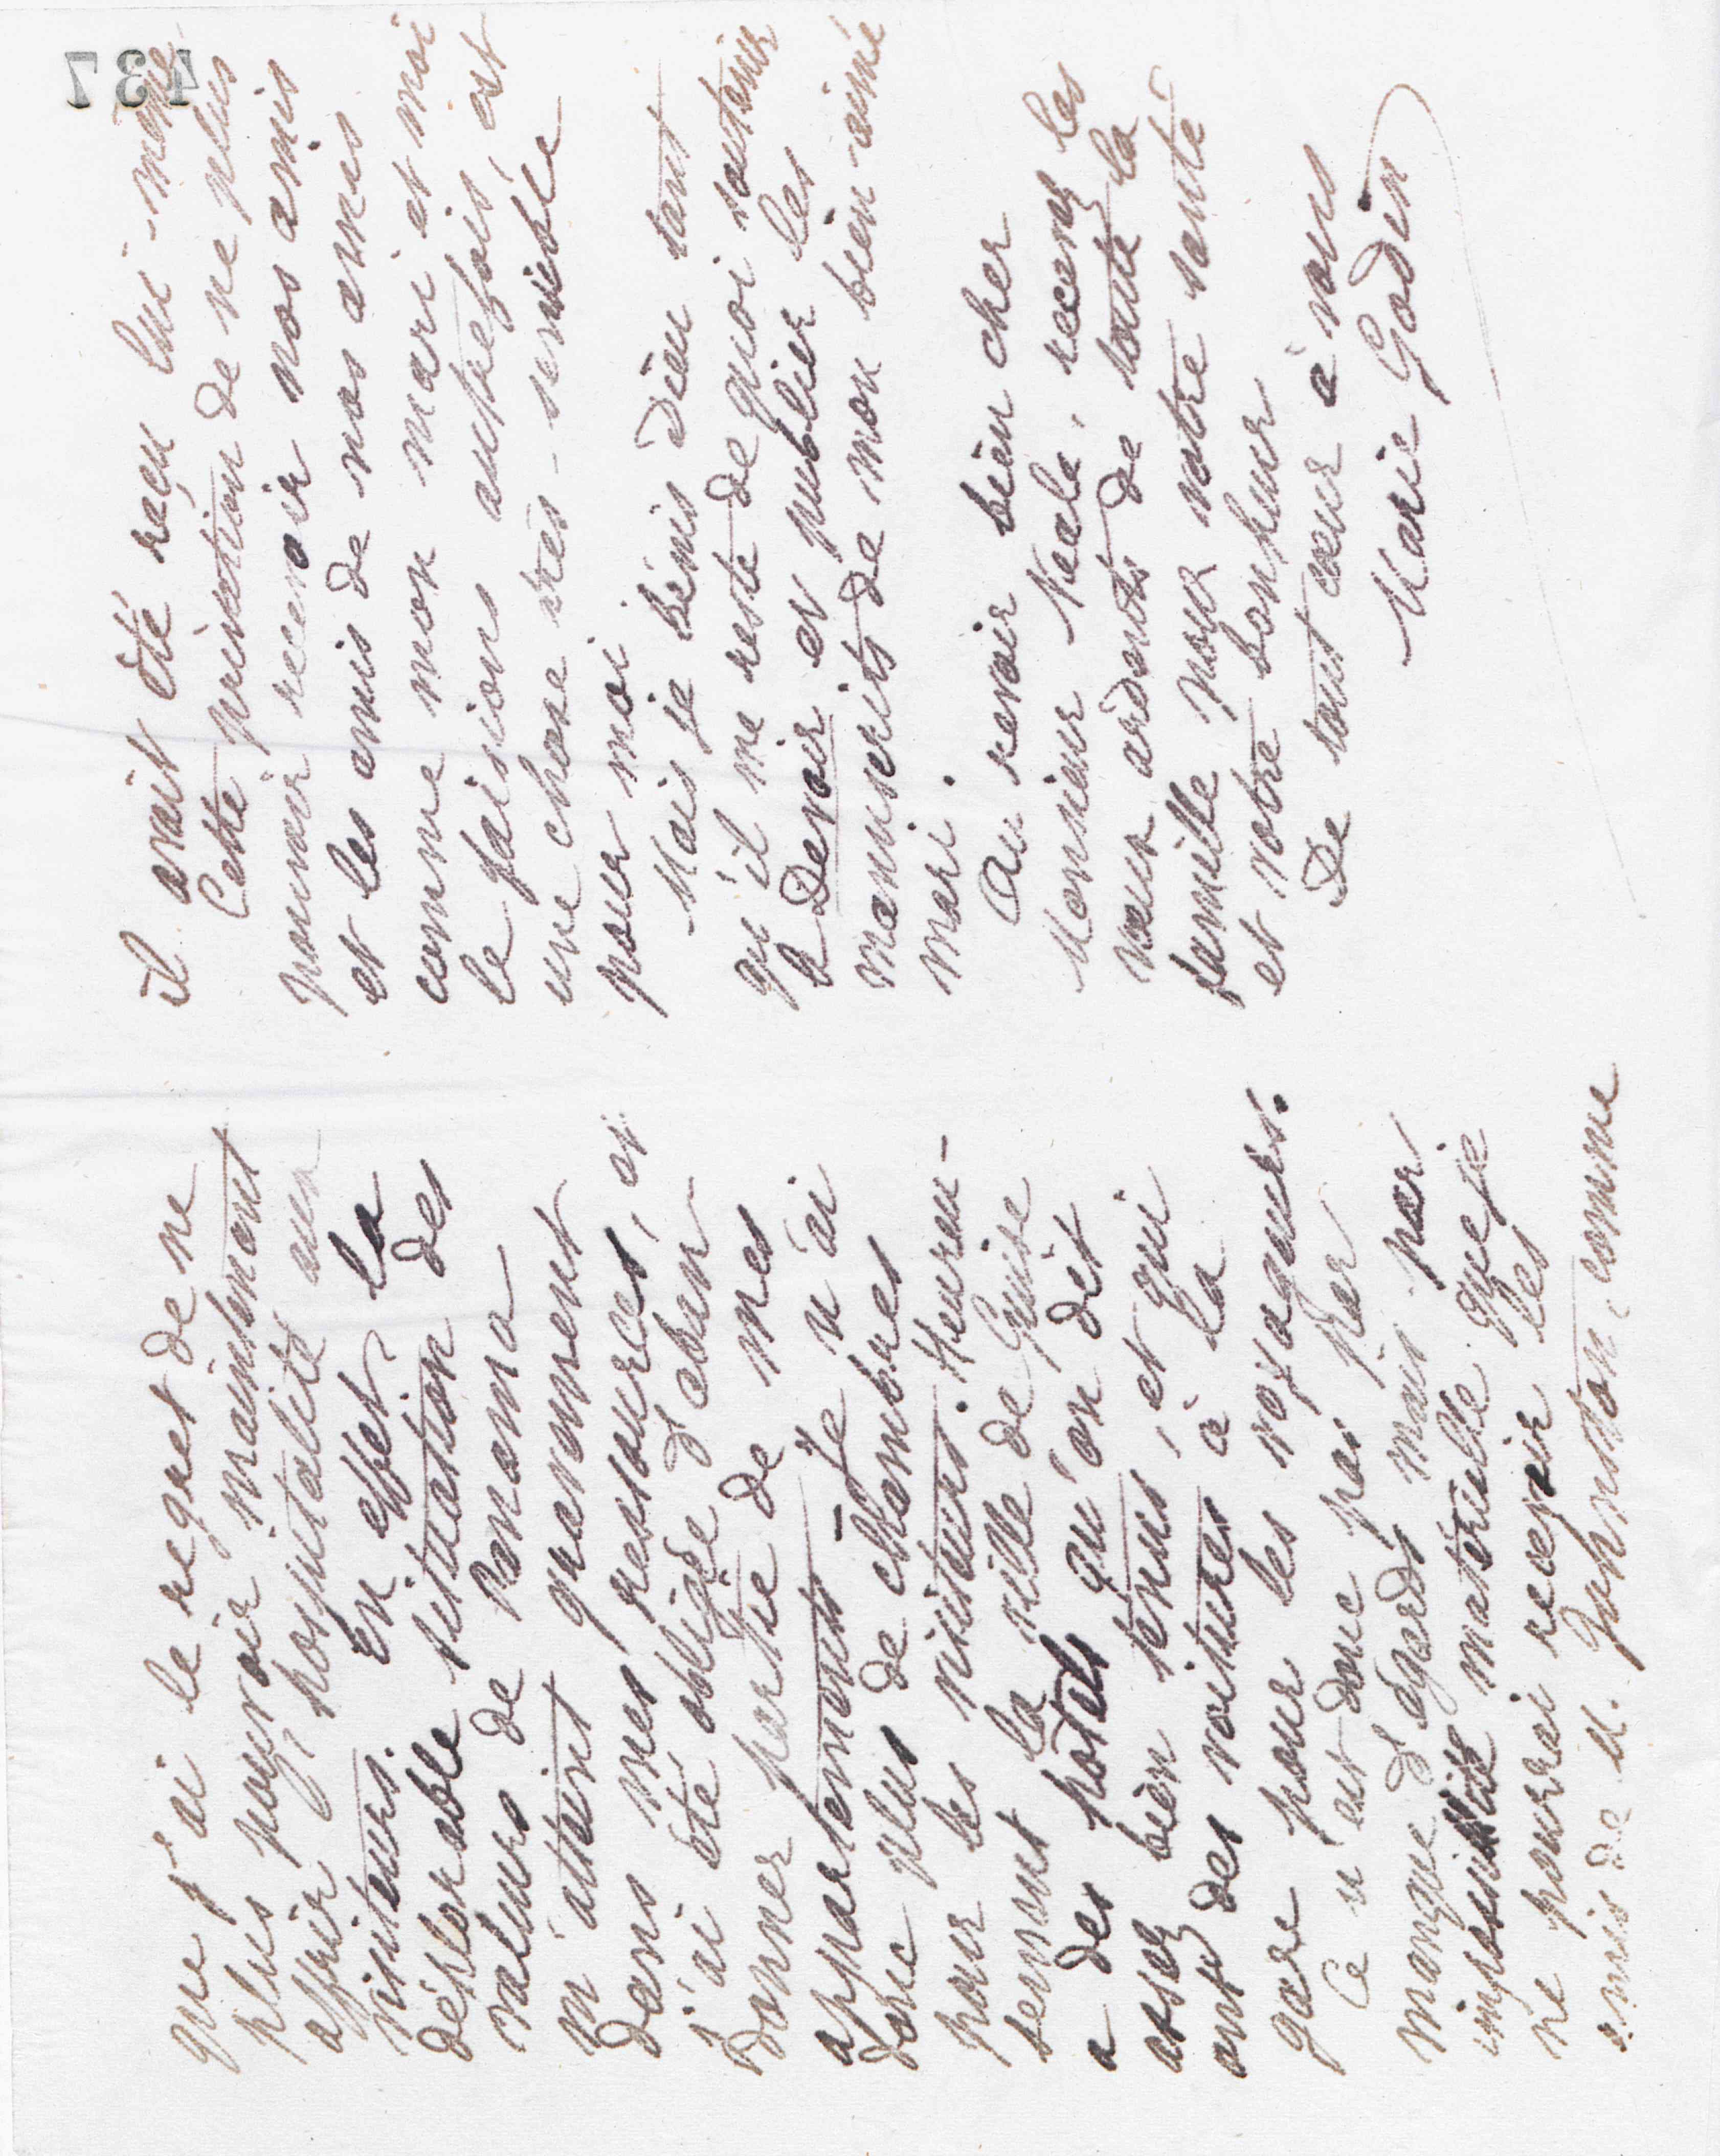 que j'ai le regret de ne
plus pouvoir maintenant
offrir l'hospitalité aux
visiteurs. En effet, la
déplorable situation des
valeurs de Panama
m'atteint gravement
dans mes ressources, et
j'ai été obligée d'aban
donner partie de mes
appartements – Je n'ai
donc plus de chambres
pour les visiteurs. Heureu-
sement la ville de Guise
a des hôtels qu'on dit
assez bien tenus, et qui
ont des voitures à la
gare pour les voyageurs.
Ce n'est donc pas par
manque d'égards mais par
impossibilité matérielle que je
ne pourrai recevoir les
amis de M. Johnston, comme
il avait été reçu lui-même
Cette privation de ne plus
pouvoir recevoir nos amis
et les amis de nos amis
comme mon mari et moi
le faisions autrefois, est
une chose très-sensible
pour moi
Mais je bénis Dieu tant
qu'il me reste de quoi soutenir
le Devoir et publier les
manuscrits de mon bien-aimé
mari.
Au revoir bien cher
Monsieur Neale, recevez les
vœux ardents de toute la
famille pour votre santé
et votre bonheur
De tout cœur à vous
Marie Godin
437